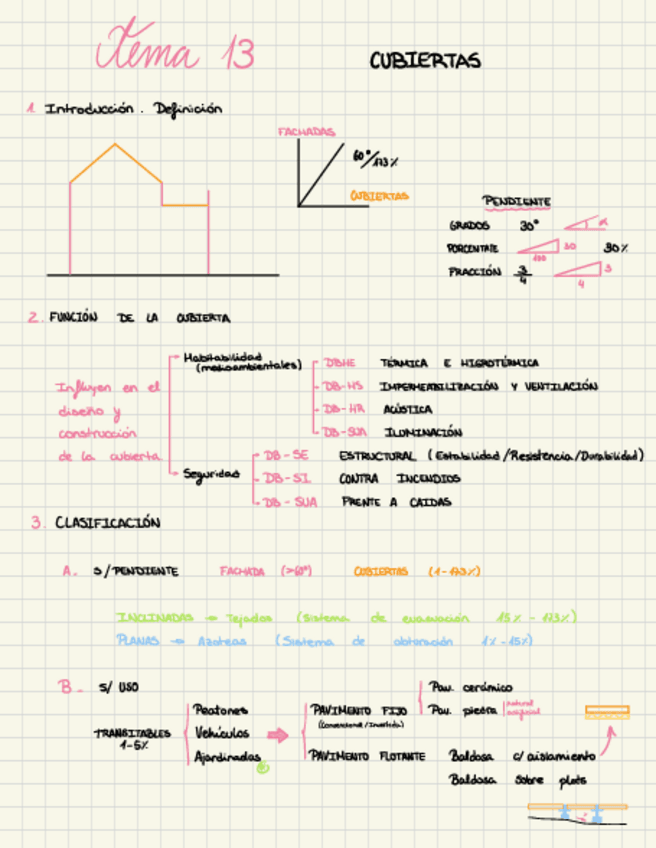 Tema 13
CUBIERTAS
1. Introducción. Definición
FACHADAS
60º/173%
CUBIERTAS
PENDIENTE
GRADOS 30º α
PORCENTAJE 30 100 30%
FRACCIÓN 3/4 3 4
2. FUNCIÓN DE LA CUBIERTA
Influyen en el
diseño y
construcción
de la cubierta.
Habitabilidad
(medioambientales)
DBHE TÉRMICA E HIGROTÉRMICA
DB-HS IMPERMEABILIZACIÓN Y VENTILACIÓN
DB-HR ACÚSTICA
DB-SUA ILUMINACIÓN
Seguridad
DB-SE ESTRUCTURAL (Estabilidad/Resistencia/Durabilidad)
DB-SI CONTRA INCENDIOS
DB-SUA FRENTE A CAIDAS
3. CLASIFICACIÓN
A. S/PENDIENTE FACHADA (>60º) CUBIERTAS (1-173%)
INCLINADAS → Tejados (Sistema de evacuación 15% - 173%)
PLANAS → Azoteas (Sistema de obturación 1% - 15%)
B. S/ USO
TRANSITABLES
1-5%
Peatones
Vehículos
Ajardinadas
PAVIMENTO FIJO
(Convencional/Invertida)
Pav. cerámico
Pav. piedra
natural
artificial
PAVIMENTO FLOTANTE
Baldosa c/aislamiento
Baldosa sobre plots